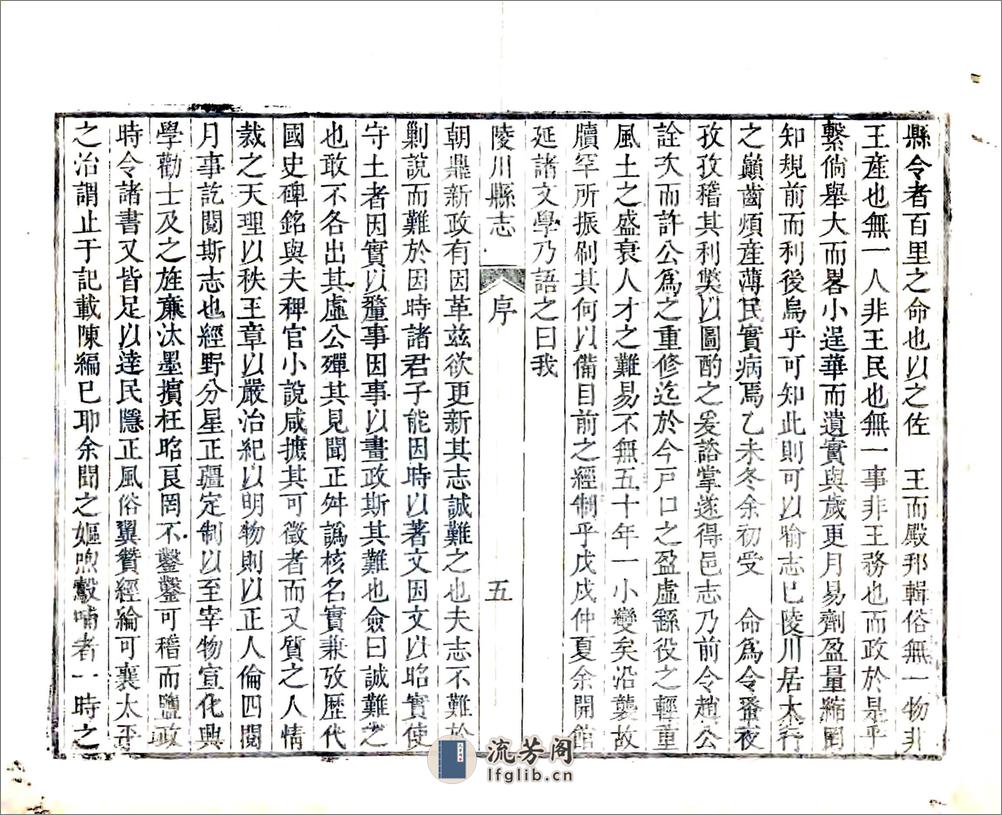 縣令者百里之命也以之佐　王而殿邦輯俗無一物非
王產也無一人非王民也無一事非王務也而政於是乎
繫倘舉大而畧小逞華而遺實與歲更月易劑盈量縮罔
知規前而利後烏乎可知此則可以喻志已陵川居太行
之巔齒煩產薄民實病焉乙未冬余初受　命爲令蚤夜
孜孜稽其利獘以圖酌之爰諮掌遂得邑志乃前令趙公
詮次而許公爲之重修迄於今戶口之盈虛繇役之輕重
風土之盛衰人才之難易不無五十年一小變矣沿襲故
牘罕所振刷其何以備目前之經制乎戊戌仲夏余開館
延諸文學乃語之曰我
陵川縣志　序　五
朝鼎新政有因革兹欲更新其志誠難之也夫志不難於
剿說而難於因時諸君子能因時以著文因文以昭實使
守土者因實以釐事因事以畫政斯其難也僉曰誠難之
也敢不各出其虛公殫其見聞正舛譌核名實兼攷歷代
國史碑銘與夫稗官小說咸摭其可徵者而又質之人情
裁之天理以秩王章以嚴治紀以明物則以正人倫四閱
月事訖閱斯志也經野分星正疆定制以至宰物宣化興
學勸士及之旌亷汰墨擯枉昭良罔不鑿鑿可稽而鹽政
時令諸書又皆足以達民隱正風俗翼贊經綸可襄太平
之治謂止于記載陳編已耶余聞之嫗煦鷇哺者一時之
流芳阁
lfglib.cn